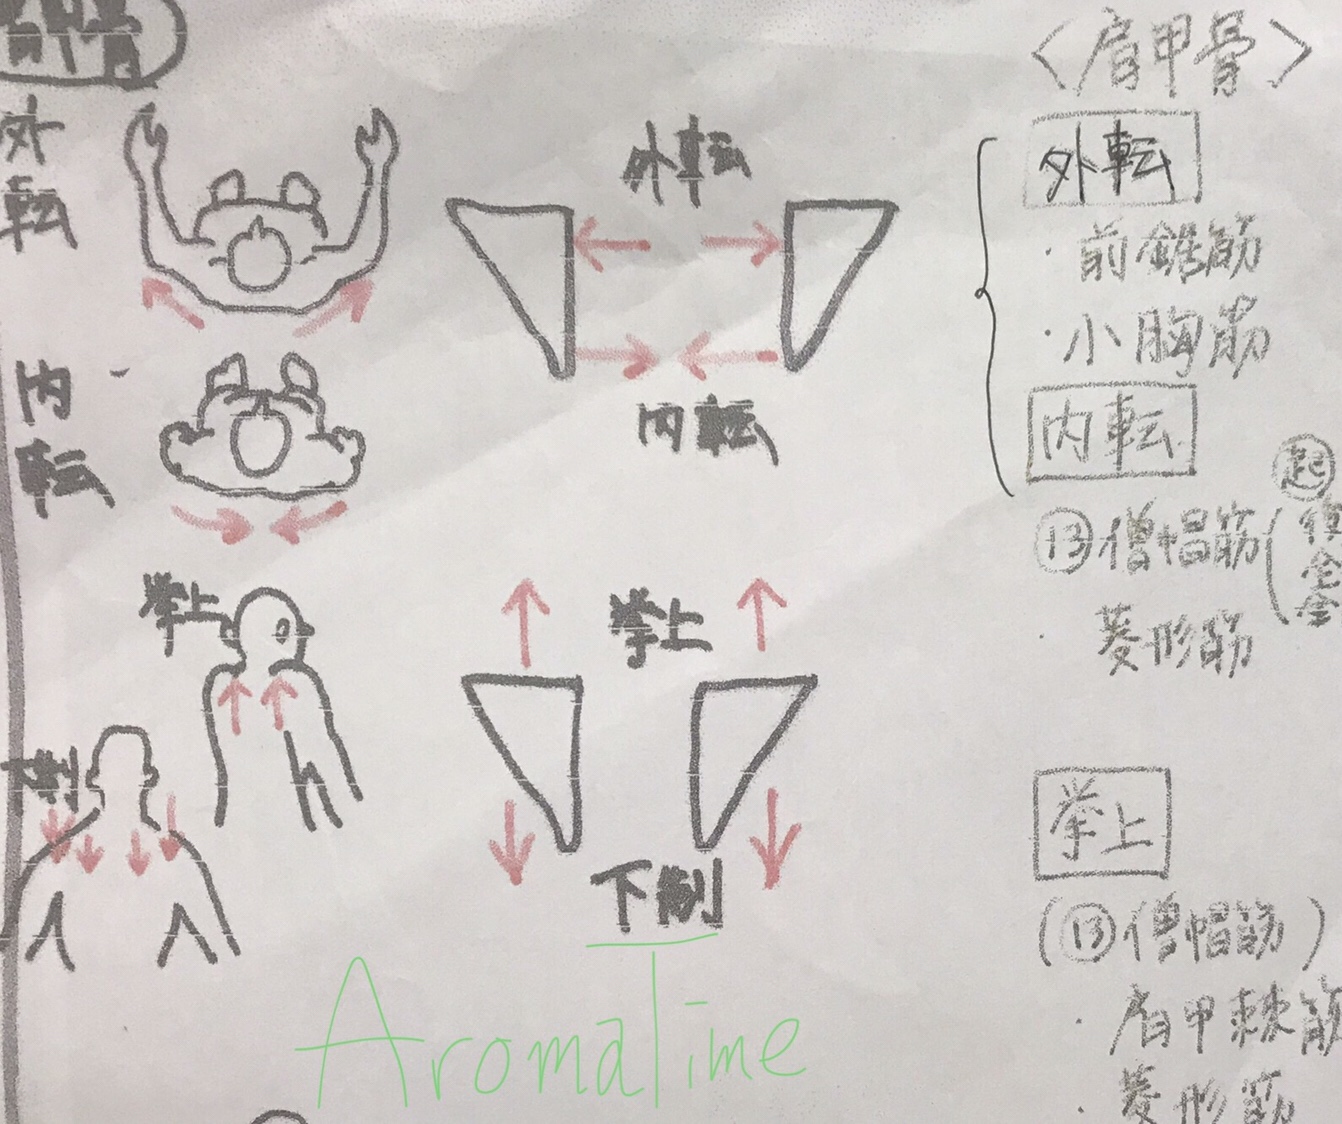 肩甲骨
外転
内転
挙上
下制
外転
内転
挙上
下制
AromaTime
〈肩甲骨〉
外転
・前鋸筋
・小胸筋
内転
⑬僧帽筋
起
・菱形筋
挙上
(⑬僧帽筋)
・肩甲棘筋
・菱形筋